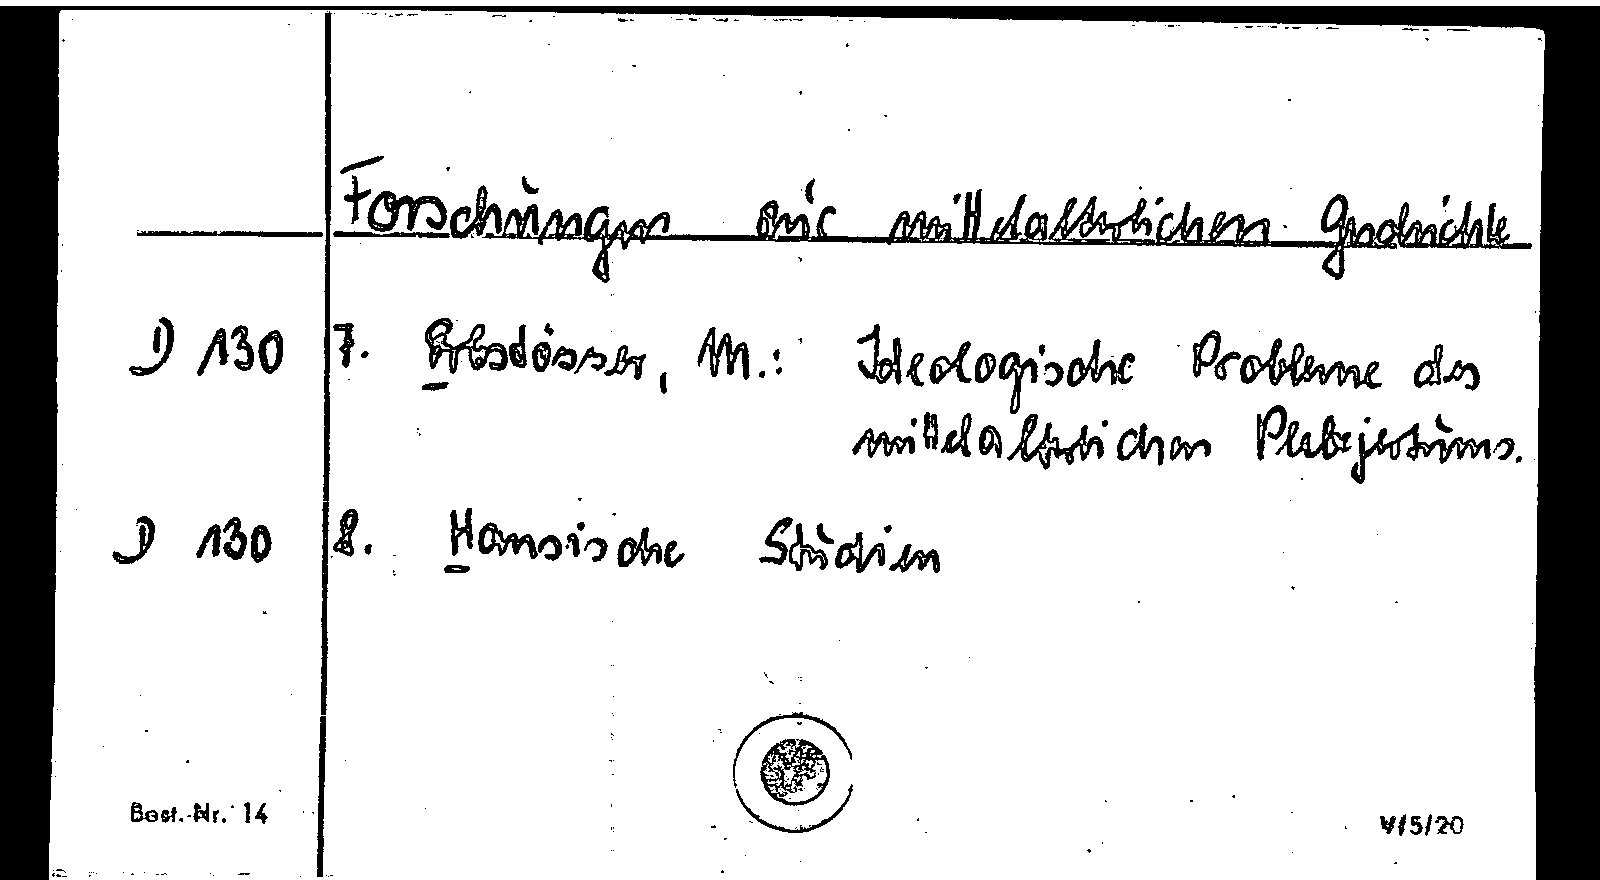 Forschungen zur mittelalterlichen Geschichte
D 130 7. Erbstösser, M.: Ideologische Probleme des
mittelalterlichen Plebejertums.
D 130 8. Hansische Studien
Best.-Nr. 14
V/5/20